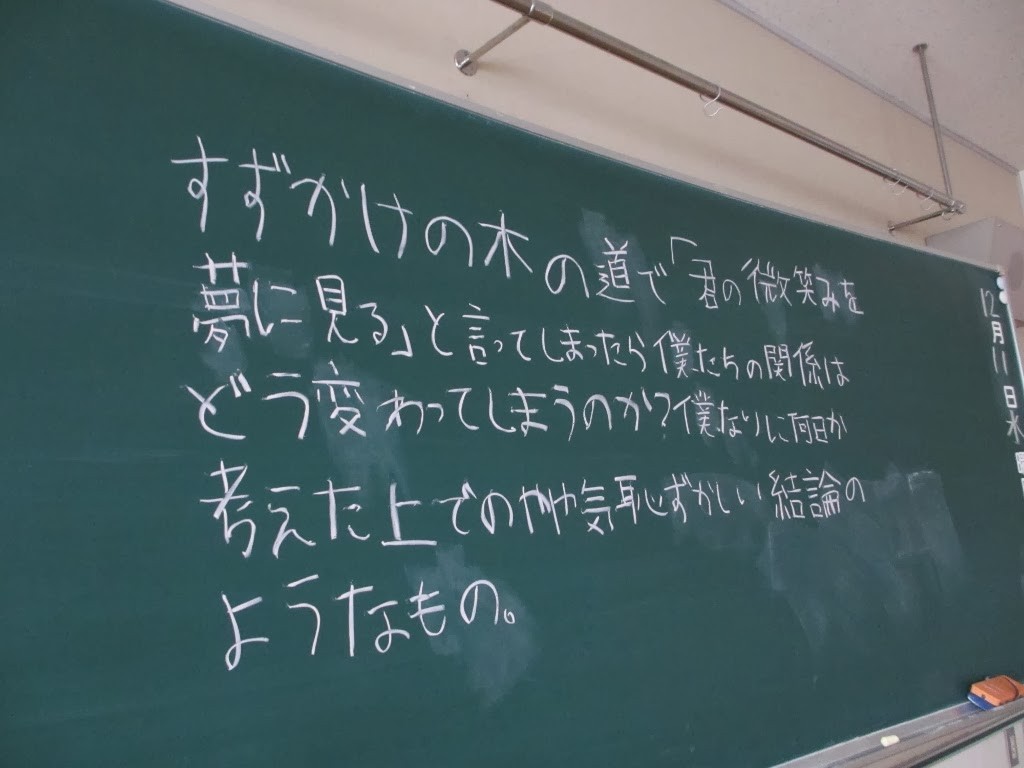 すずかけの木の道で「君の微笑みを
夢に見る」と言ってしまったら僕たちの関係は
どう変わってしまうのか?僕なりに何日か
考えた上でのやや気恥ずかしい結論の
ようなもの。
12月11日水